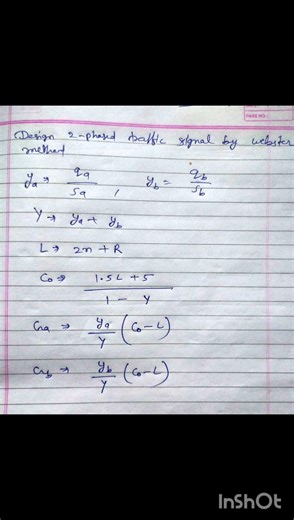 PAGE NO.:
Design 2-phased traffic signal by webster
method
ya → qa/sa , yb = qb/sb
Y → ya + yb
L → 2n + R
Co → 1.5L + 5 / 1 - Y
Ga → ya/Y (Co - L)
Gb → yb/Y (Co - L)
InShOt